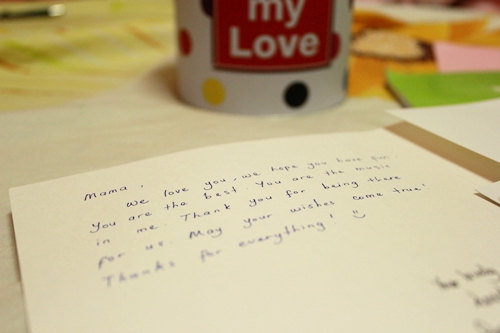 my
Love
Mama,
We love you, we hope you have fun.
You are the best. You are the music
in me. Thank you for being there
for us. May your wishes come true!
Thanks for everything! :)
the